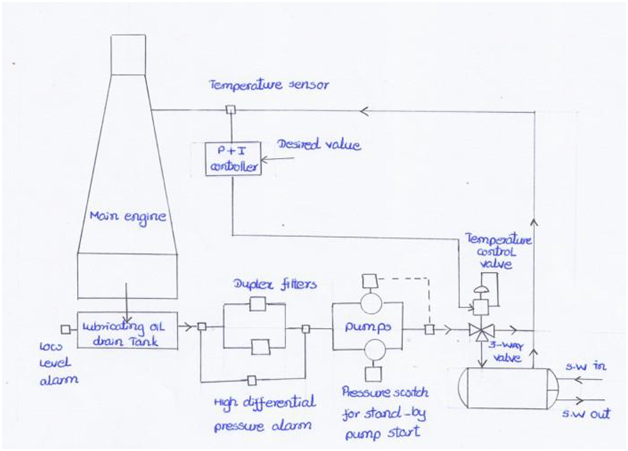 Temperature sensor
P+I
controller
Desired value
Main engine
Temperature
control
valve
Duplex filters
pumps
Lubricating oil
drain Tank
3-way
valve
low
level
alarm
S.W in
S.W out
High differential
pressure alarm
Pressure
for stand-by
pump start